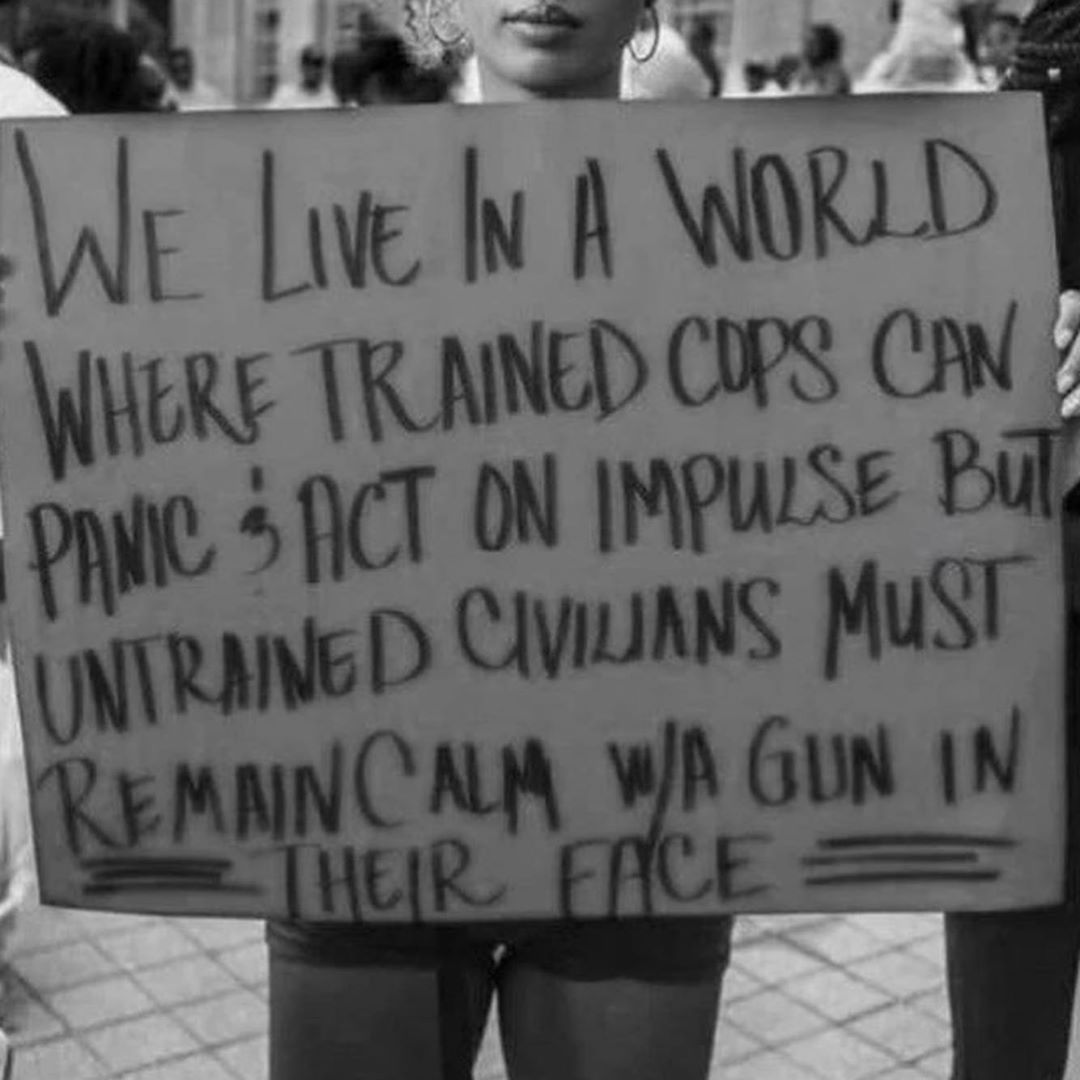 WE LIVE IN A WORLD
WHERE TRAINED COPS CAN
PANIC & ACT ON IMPULSE BUT
UNTRAINED CIVILIANS MUST
REMAIN CALM W/A GUN IN
THEIR FACE